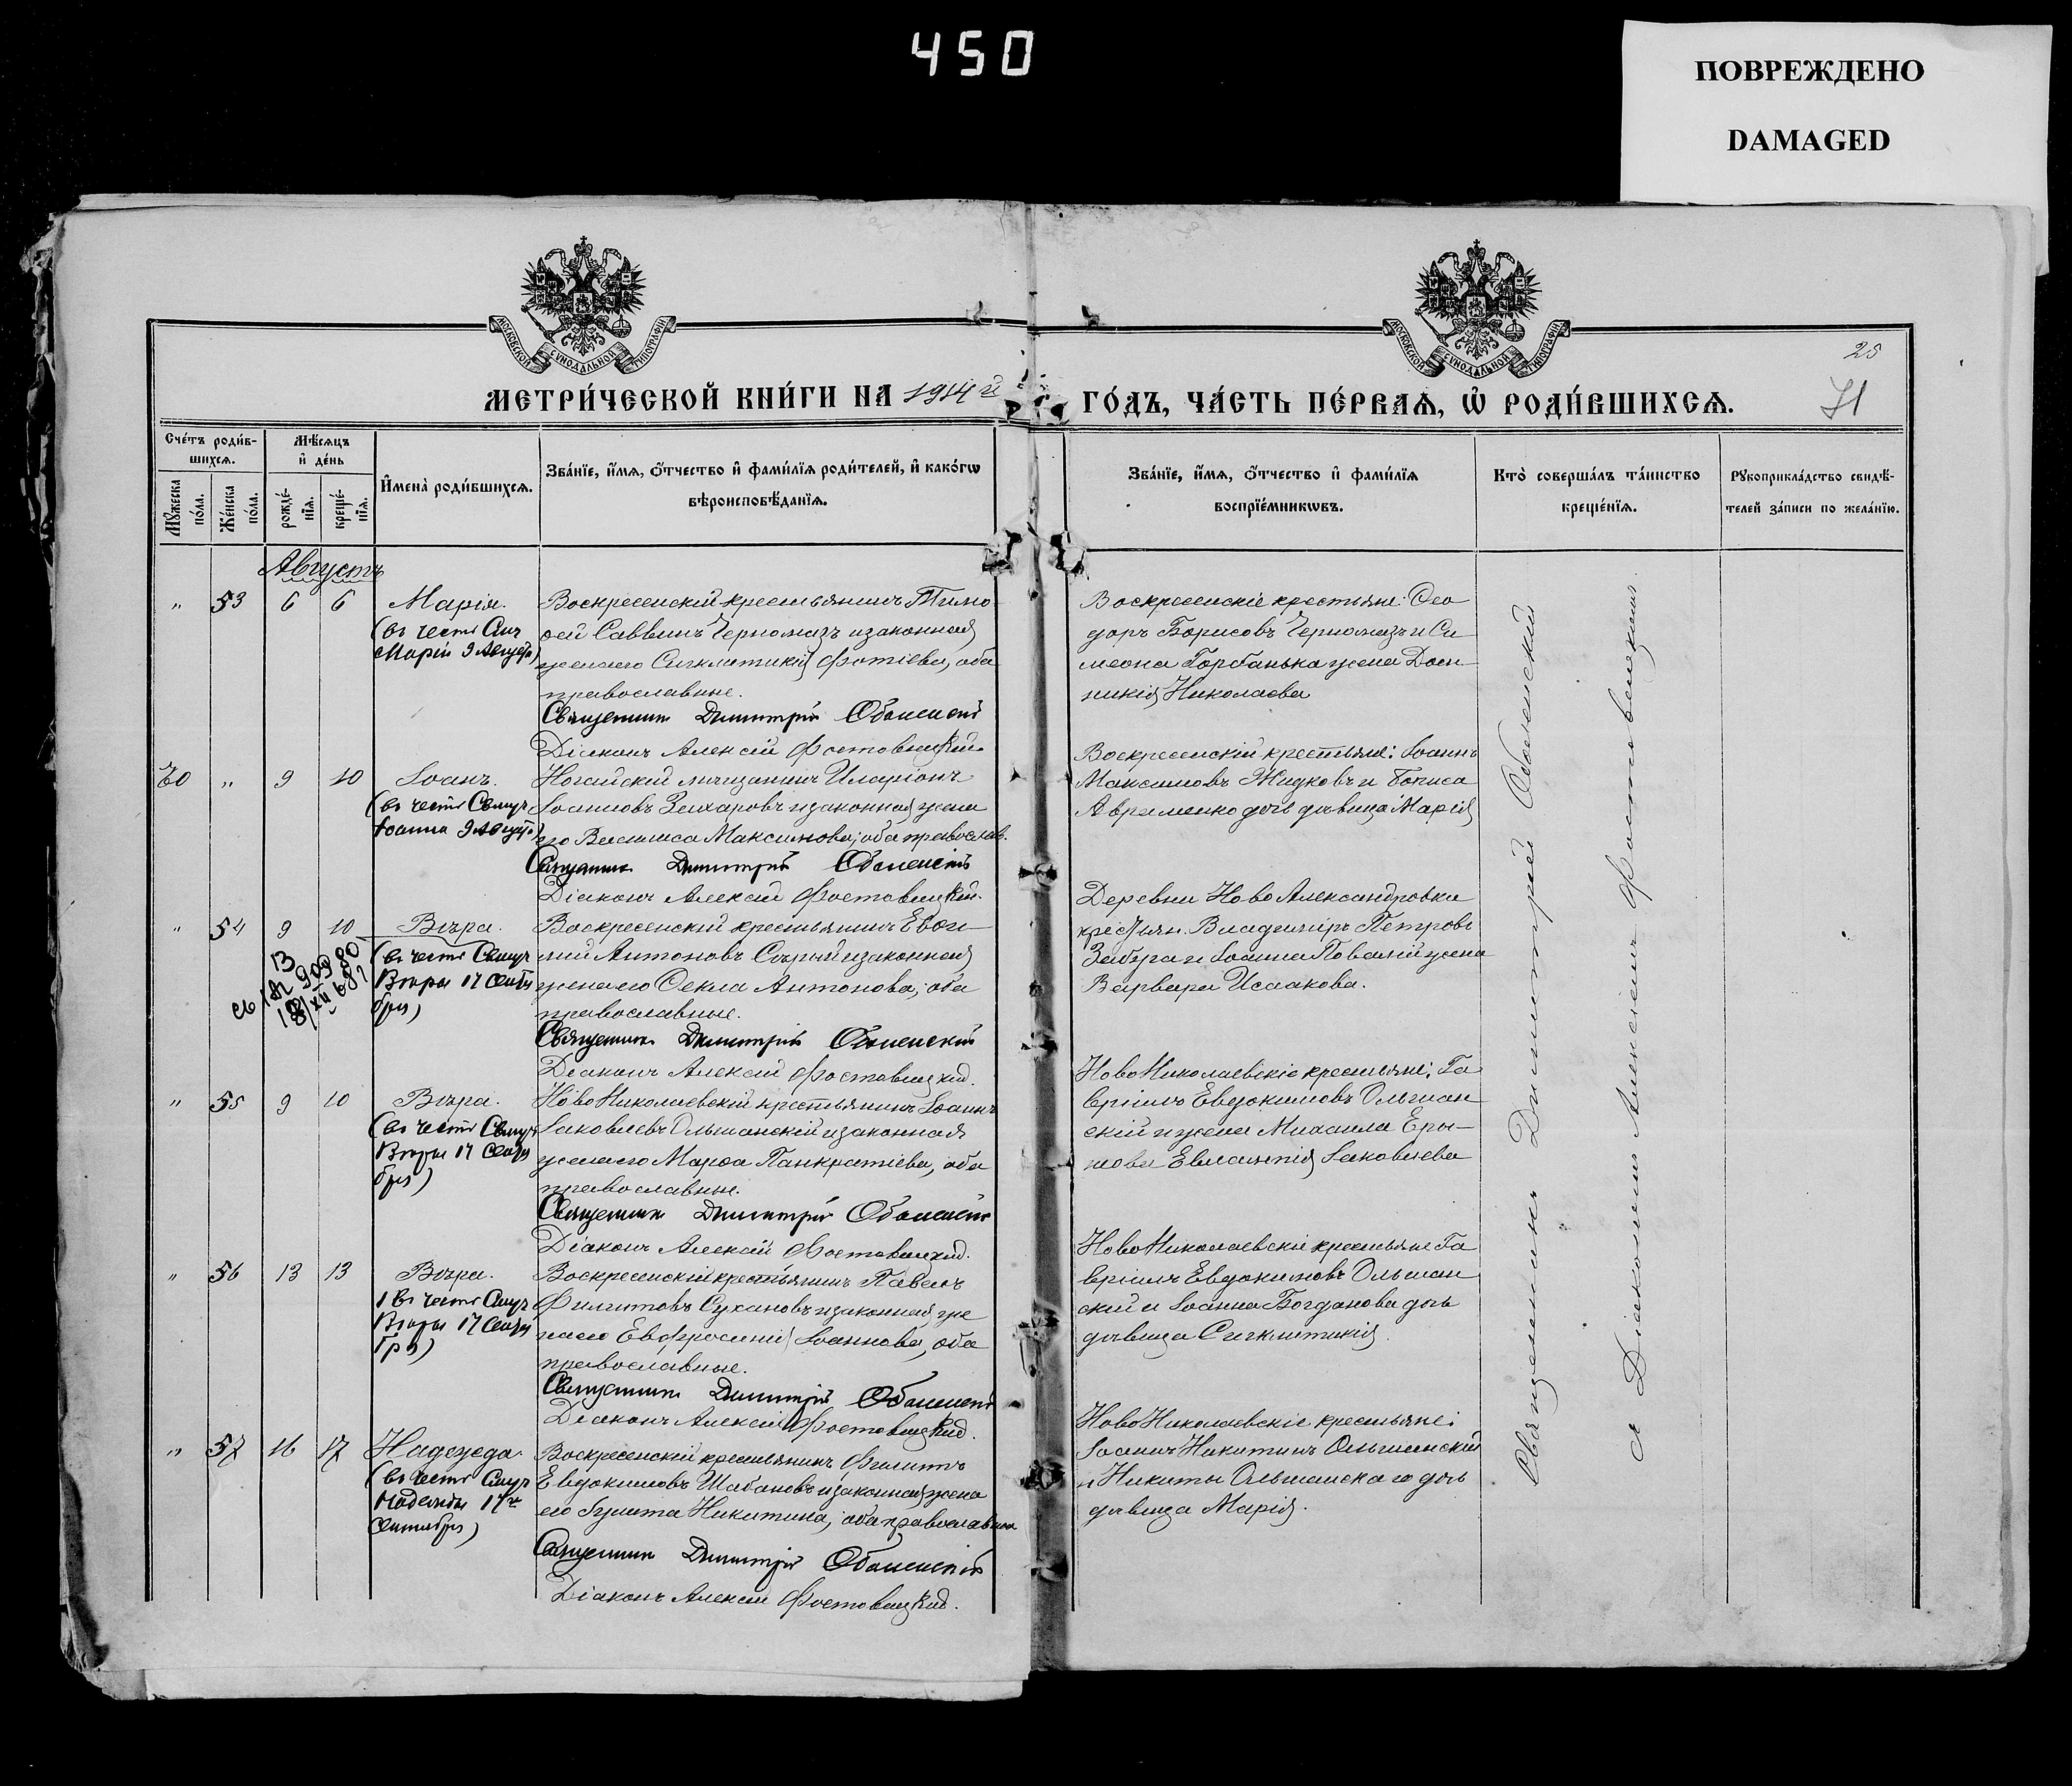 450
ПОВРЕЖДЕНО
DAMAGED
МОСКОВСКОЙ СУНОДАЛЬНОЙ ТИПОГРАФІИ
МОСКОВСКОЙ СУНОДАЛЬНОЙ ТИПОГРАФІИ
25
71
МЕТРИ́ЧЕСКОЙ КНИ́ГИ НА 1914 й
ГО́ДЪ, ЧА́СТЬ ПЕ́РВАѦ, Ѡ҆ РОДИ́ВШИХСѦ.
Сче́тъ роди́в-
шихсѧ.
Мꙋ́жеска
по́ла.
Же́нска
по́ла.
Мѣ́сѧцъ
и҆ де́нь
рожде́-
нїѧ.
креще́-
нїѧ.
И҆мена̀ роди́вшихсѧ.
Зва́нїе, и҆́мѧ, ѻ҆́тчество и҆ фами́лїѧ роди́телей, и҆ како́гѡ
вѣроисповѣ́данїѧ.
Зва́нїе, и҆́мѧ, ѻ҆́тчество и҆ фами́лїѧ
воспрїе́мникѡвъ.
Кто̀ соверша́лъ та́инство
креще́нїѧ.
Рꙋкоприкла́дство свидѣ́-
телей за́писи по жела́нїю.
Августъ
" 53 6 6 Марія.
(въ честь
Маріи 9 Августа)
Воскресенскій крестьянинъ Тимо
ѳей Саввинъ Черномазъ и законная
жена его Сигклитикія Фотіева, оба
православные.
Священникъ Димитрій Оболенскій
Діаконъ Алексій Фостовецкій
Воскресенскіе крестьяне: Ѳео
доръ Борисовъ Черномазъ и Си
меона Горбанька жена Дом
никія Николаева
60 " 9 10 Іоанъ.
(въ честь
Іоанна 9 Августа)
Ногайскій мѣщанинъ Иларіонъ
Іоанновъ Захаровъ и законная жена
его Васписа Максимова; оба православ.
Священникъ Димитрій Оболенскій
Діаконъ Алексій Фостовецкій.
Воскресенскій крестьяне: Іоаннъ
Максимовъ Жидковъ и
Авраменко дочь дѣвица Марія
" 54 9 10 Вѣра.
(въ честь
Вѣры 17 Сентя
бря)
13
Воскресенскій крестьянинъ Евѳи-
мій Антоновъ Сѣрый и законная
жена его Ѳекла Антонова, оба
православные.
Священникъ Димитрій Оболенскій
Діаконъ Алексій Фостовецкій.
Деревни Ново Александровки
крестьян. Владимиръ Петровъ
Забура и Іоанна Повалій жена
Варвара Исаакова.
" 55 9 10 Вѣра.
(въ честь
Вѣры 17 Сентя
бря)
Ново Николаевскій крестьянинъ Іоаннъ
Іаковлевъ Ольшанскій и законная
жена его Марѳа Панкратіева, оба
православные.
Священникъ Димитрій Оболенскій
Діаконъ Алексій Фостовецкій.
Ново Николаевскіе крестьяне: Га
вріилъ Евдокимовъ Ольшан
скій и жена Михаила Еры-
мова Евлампія Іаковлева
" 56 13 13 Вѣра.
(въ честь
Вѣры 17 Сентя
бря)
Воскресенскій крестьянинъ Павелъ
Филиповъ Сухановъ и законная же
на его Евфросинія Іоаннова, оба
православные.
Священникъ Димитрій Оболенскій
Діаконъ Алексій Фостовецкій.
Ново Николаевскіе крестьяне Га
вріилъ Евдокимовъ Ольшан
скій и Іоанна Богданова дочь
дѣвица Сигклитикія.
" 57 16 17 Надежда.
(въ честь
Надежды 17 го
Сентября)
Воскресенскій крестьянинъ Филиппъ
Евдокимовъ Шабановъ и законная жена
его Гулита Никитина, оба православные
Священникъ Димитрій Оболенскій
Діаконъ Алексій Фостовецкій.
Ново Николаевскіе крестьяне:
Іоаннъ Никитинъ Ольшанскій
и Никиты Ольшанскаго дочь
дѣвица Марія.
Священникъ Димитрій Оболенскій
съ Діакономъ Алексіемъ Фостовецкимъ